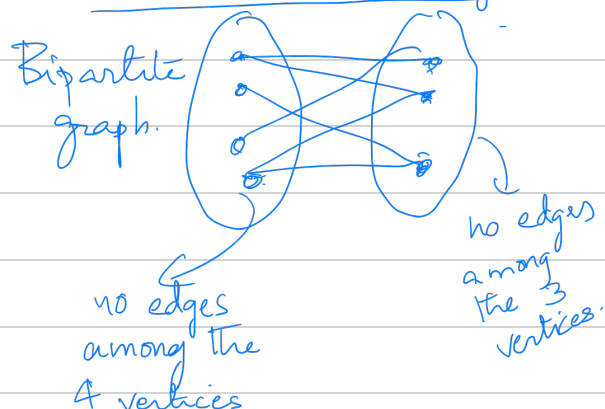 Bipartite
graph.
no edges
among
the 3
vertices.
no edges
among the
4 vertices